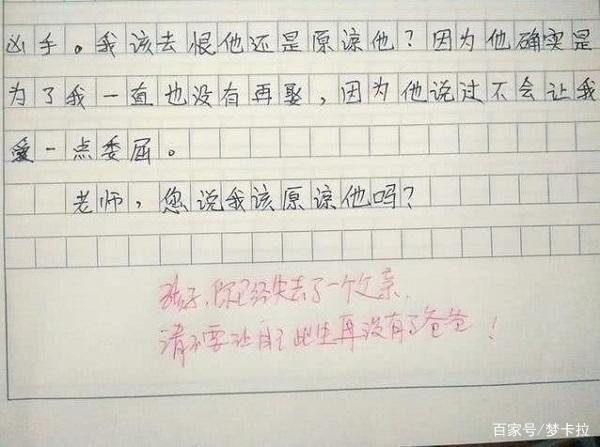 凶手。我该去恨他还是原谅他？因为他确实是
为了我一直也没有再娶，因为他说过不会让我
受一点委屈。
老师，您说我该原谅他吗？
孩子，你已经失去了一个父亲，
请不要让自己此生再没有了爸爸！
百家号/梦卡拉